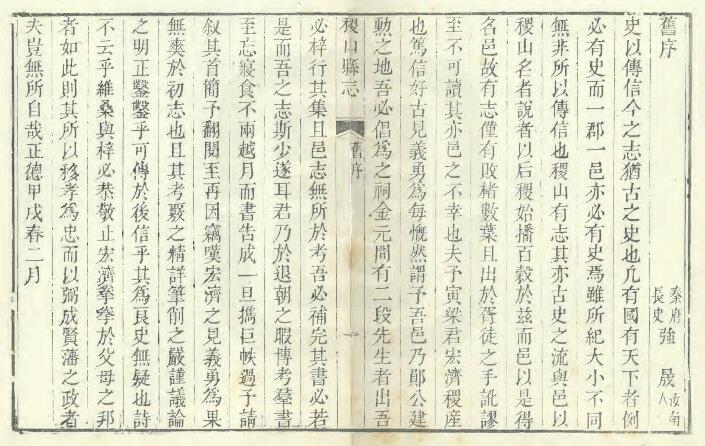 舊序
秦府長史強晟汝南人
史以傳信今之志猶古之史也凡有國有天下者例
必有史而一郡一邑亦必有史焉雖所紀大小不同
無非所以傳信也稷山有志其亦古史之流與邑以
稷山名者說者以后稷始播百穀於兹而邑以是得
名邑故有志僅有敗楮數葉且出於胥徒之手訛謬
至不可讀其亦邑之不幸也夫予寅梁君宏濟稷產
也篤信好古見義勇為每慨然謂予吾邑乃鄖公建
勲之地吾必倡為之祠金元間有二段先生者出吾
稷山縣志
舊序
一
必梓行其集且邑志無所於考吾必補完其書必若
是而吾之志斯少遂耳君乃於退朝之暇博考羣書
至忘寢食不兩越月而書告成一旦擕巨帙過予請
叙其首簡予翻閱至再因竊嘆宏濟之見義勇為果
無爽於初志也且其考覈之精詳筆削之嚴謹議論
之明正鑿鑿乎可傳於後信乎其為良史無疑也詩
不云乎維桑與梓必恭敬止宏濟拳拳於父母之邦
者如此則其所以移孝為忠而以弼成賢藩之政者
夫豈無所自哉正德甲戌春二月